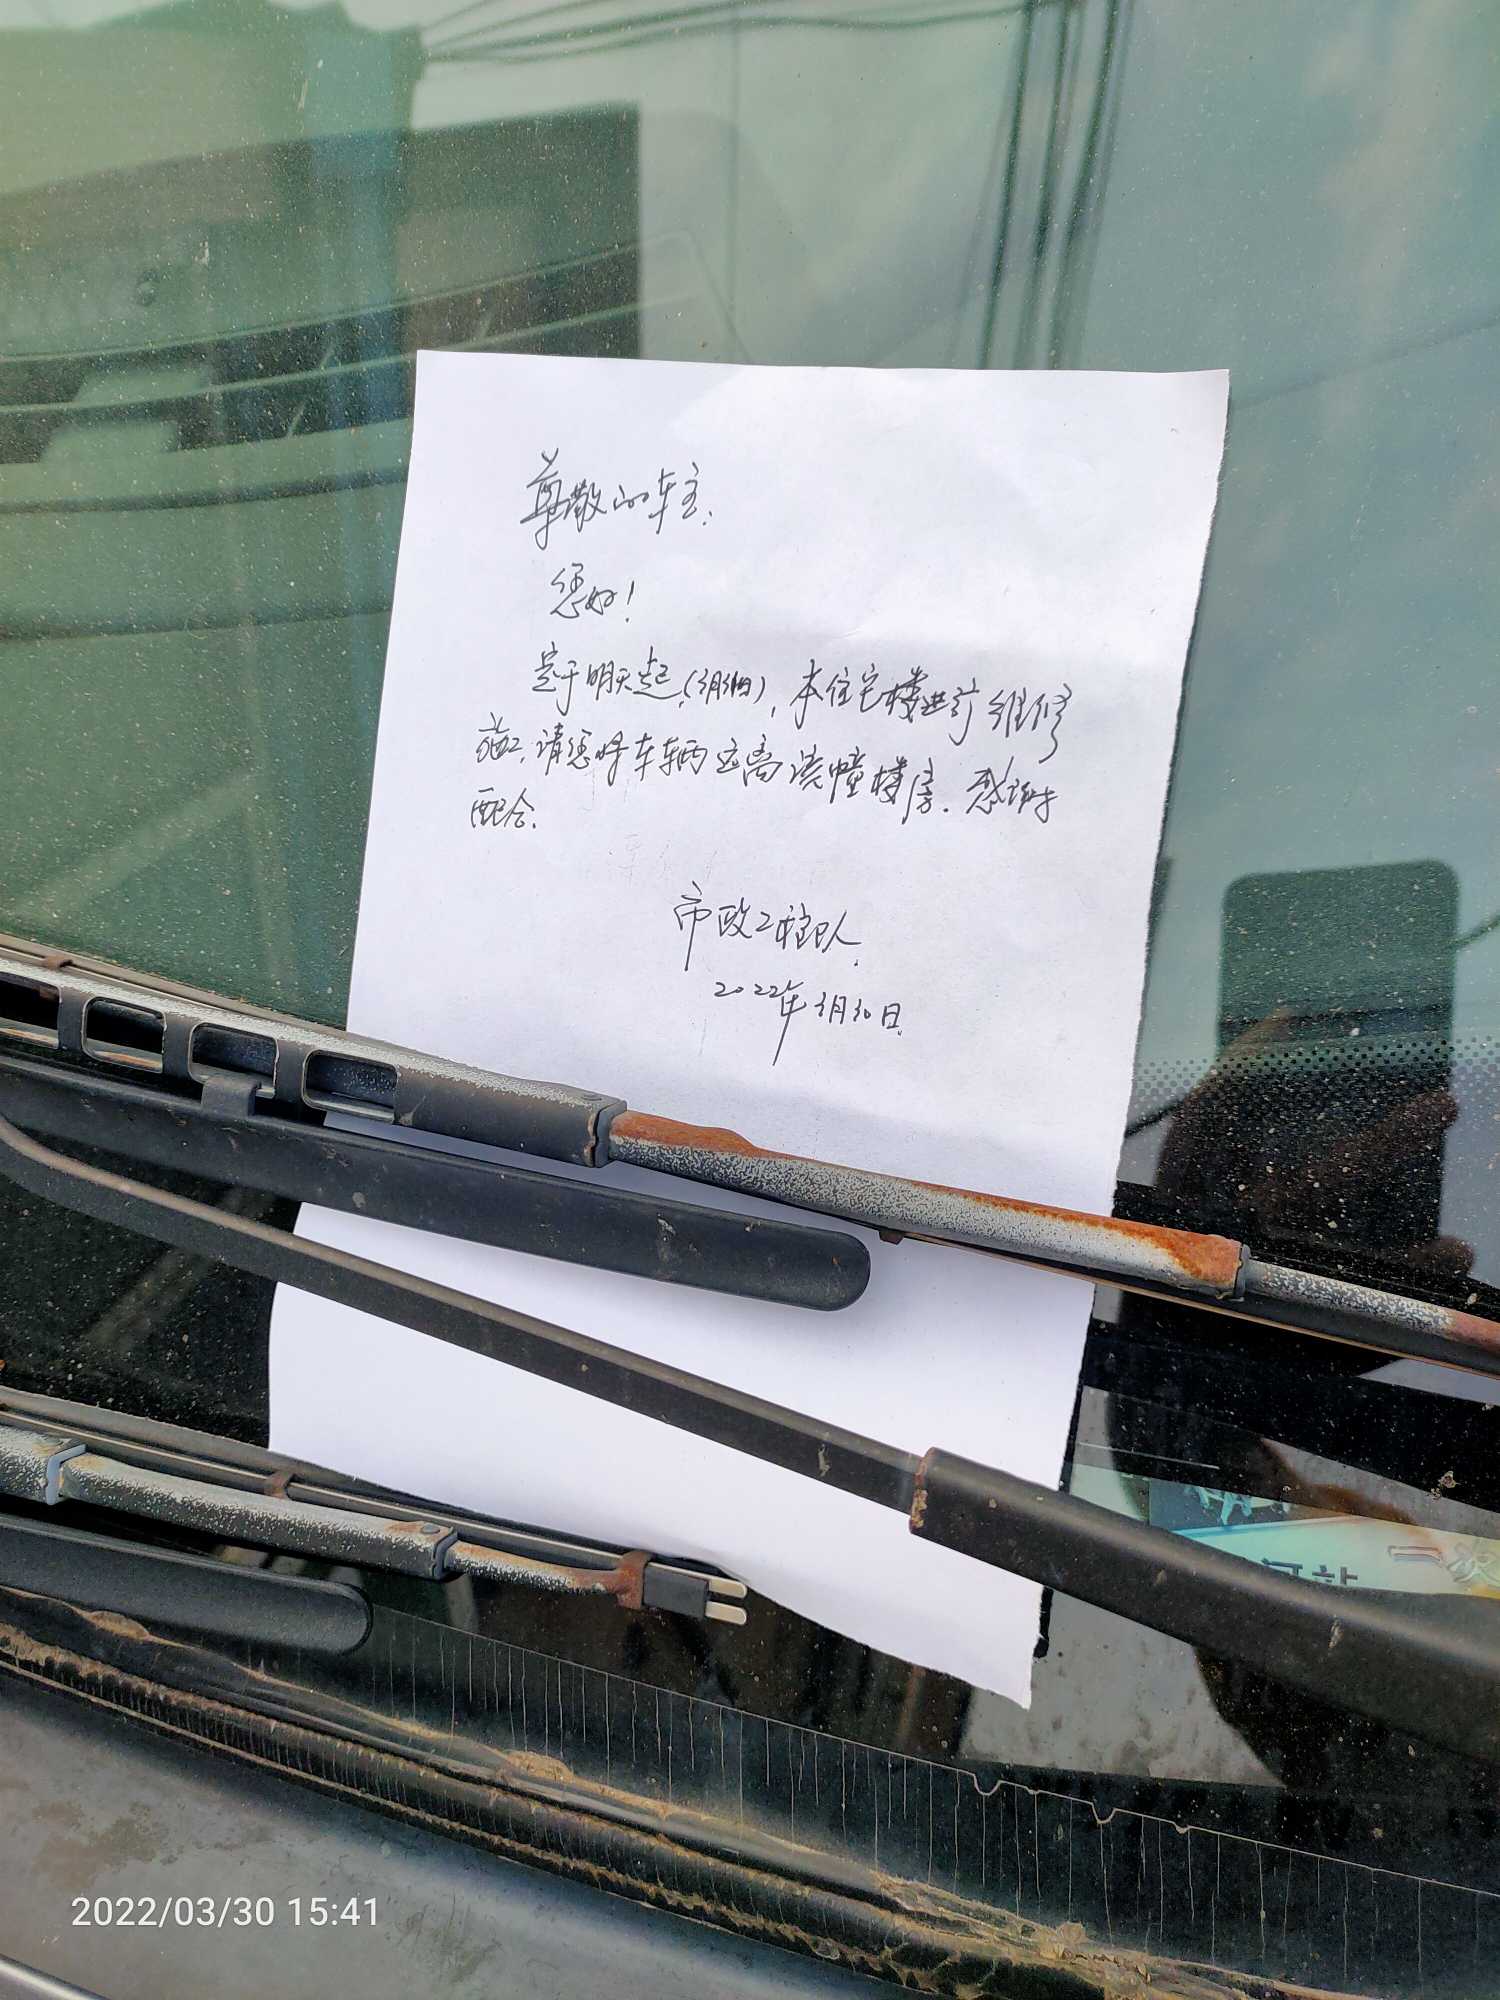 尊敬的车主:
您好!
定于明天起,(3月31日),本住宅楼进行维修
施工,请您将车辆远离该幢楼房.感谢
配合.
市政工程队.
2022年3月30日.
一次
2022/03/30 15:41